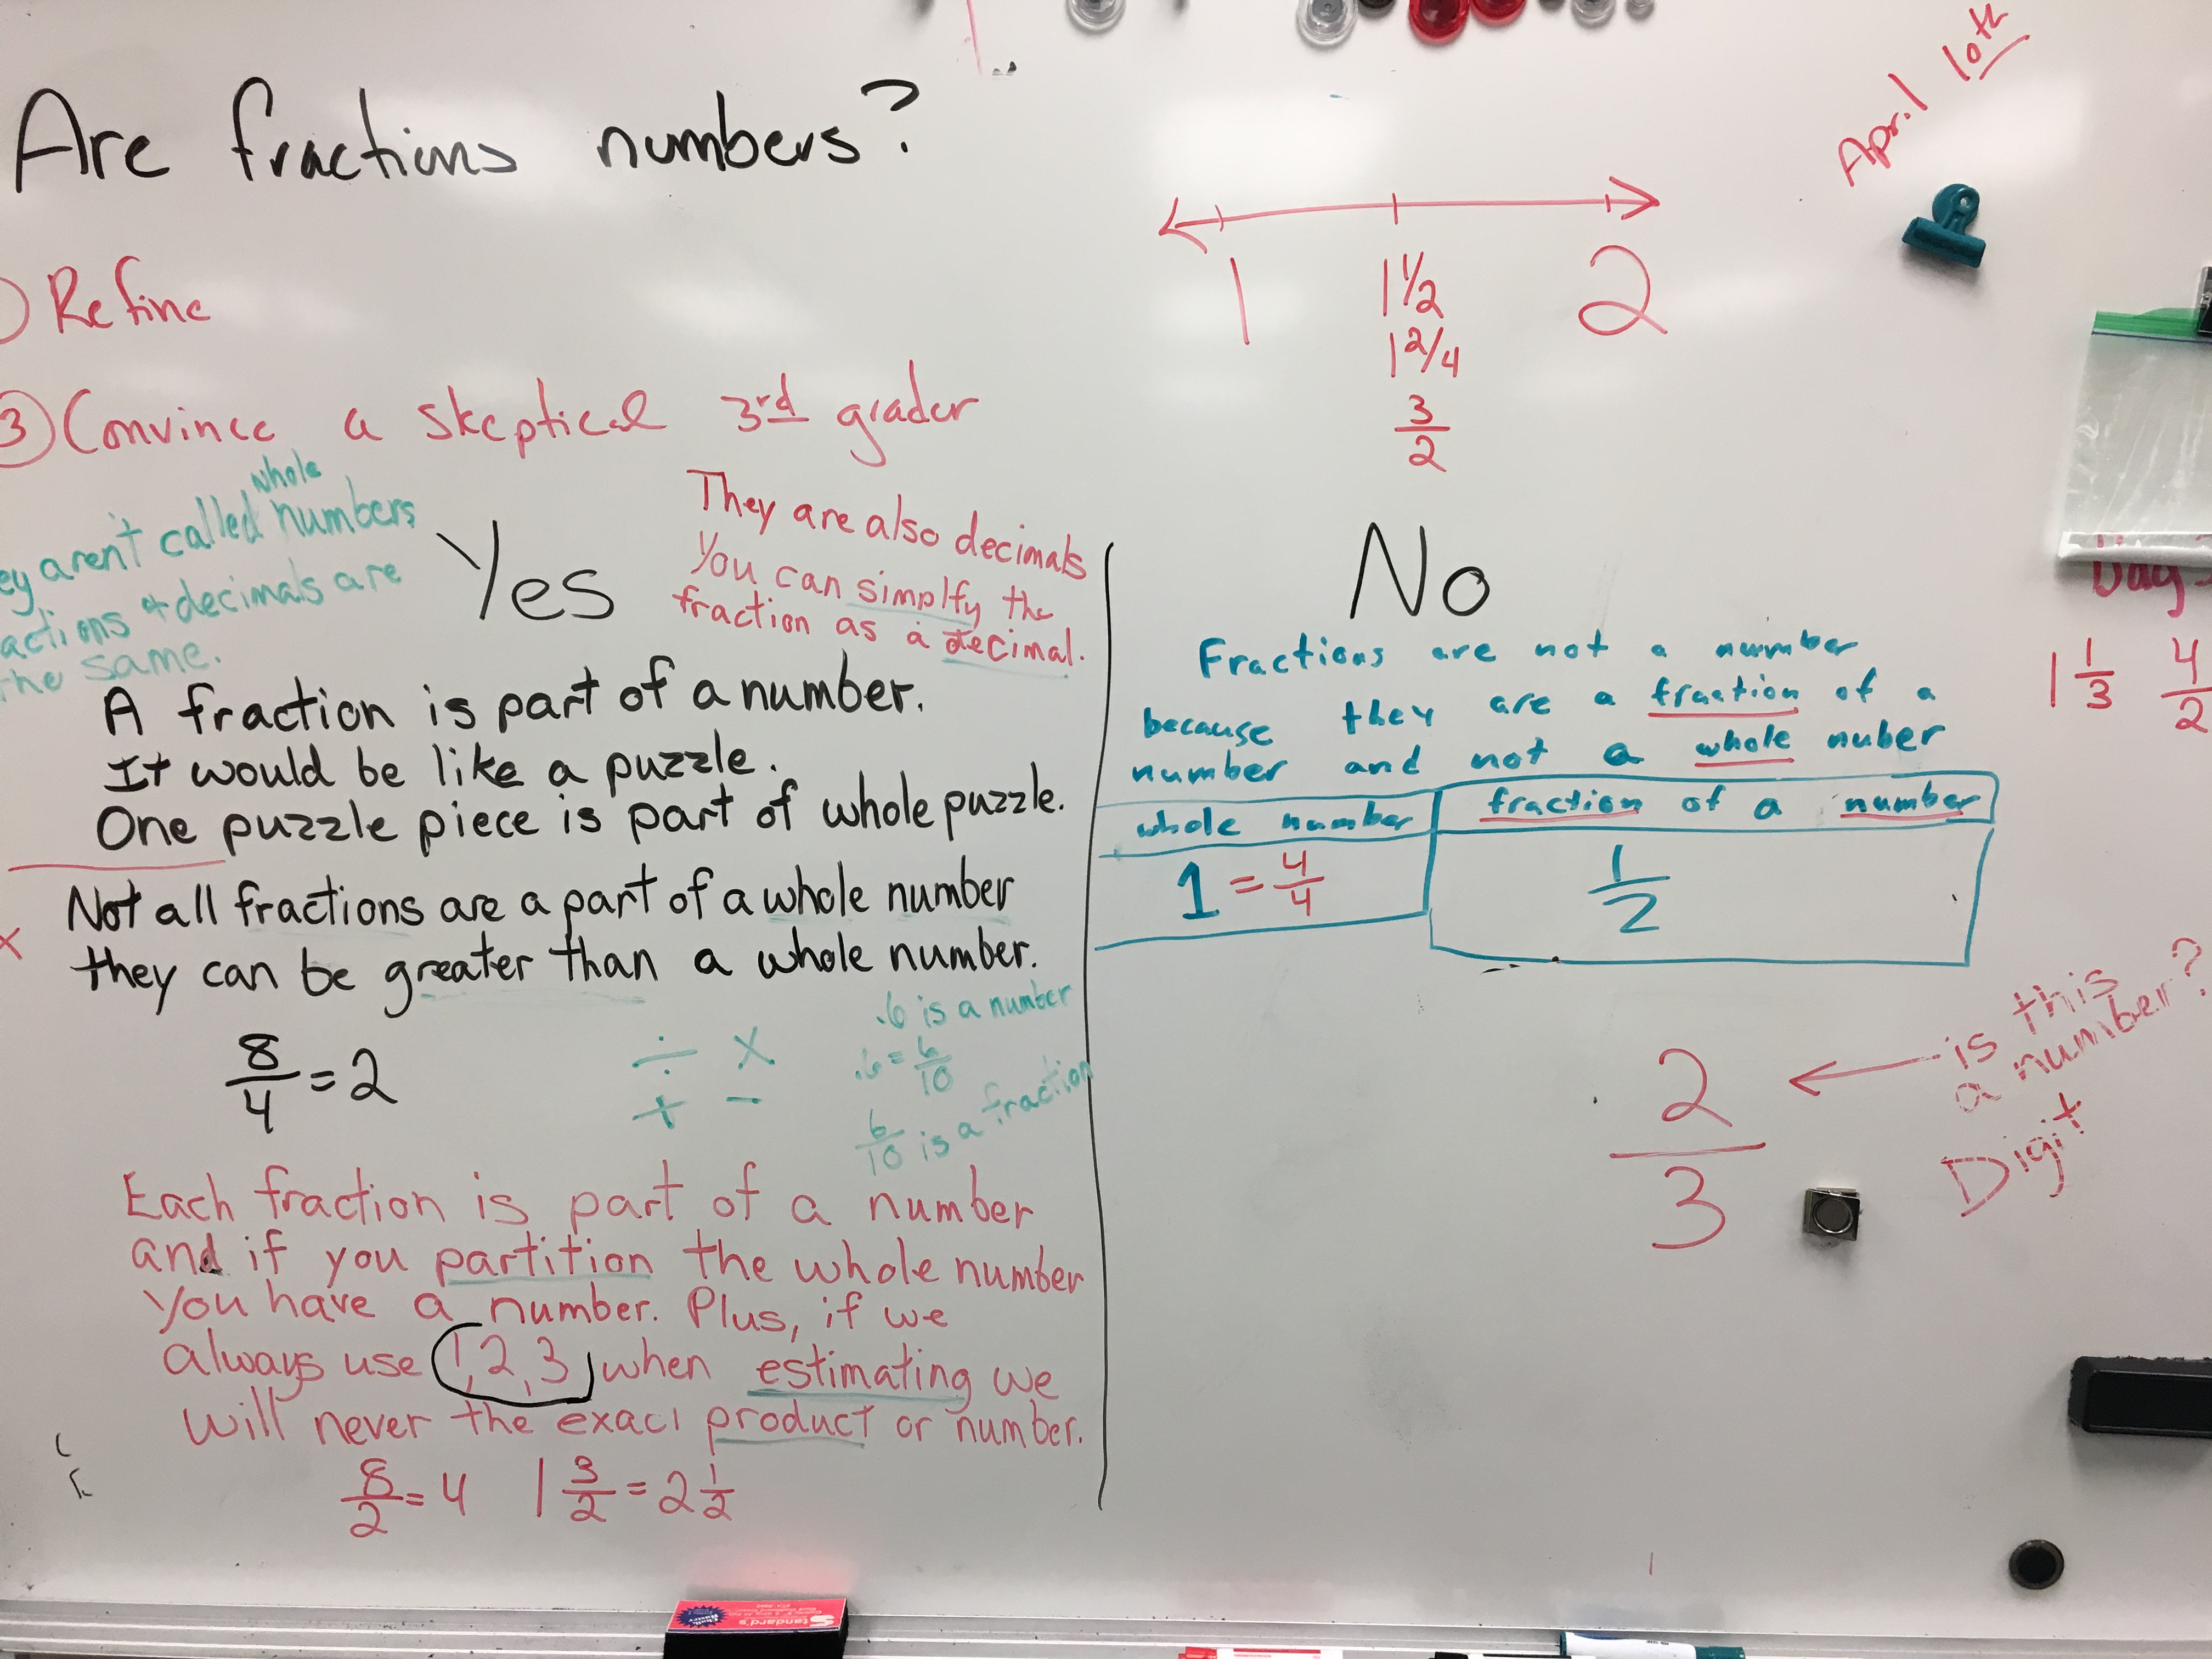 Are fractions numbers?
April 10th
Refine
3 Convince a skeptical 3rd grader
1 2
1 1/2
1 2/4
3/2
whole
ey aren't called numbers
actions + decimals are
the same.
Yes
They are also decimals
You can simplfy the
fraction as a decimal.
A fraction is part of a number.
It would be like a puzzle.
One puzzle piece is part of whole puzzle.
x Not all fractions are a part of a whole number
they can be greater than a whole number.
8/4 = 2
÷ x
+ -
.6 is a number
.6 = 6/10
6/10 is a fraction
Each fraction is part of a number
and if you partition the whole number
you have a number. Plus, if we
always use 1, 2, 3 when estimating we
will never the exact product or number.
8/2 = 4 1 3/2 = 2 1/2
No
Fractions are not a number
because they are a fraction of a
number and not a whole nuber
whole number fraction of a number
1 = 4/4 1/2
2/3
is this
a number?
Digit
Day
1 1/3 4/2
Standard's